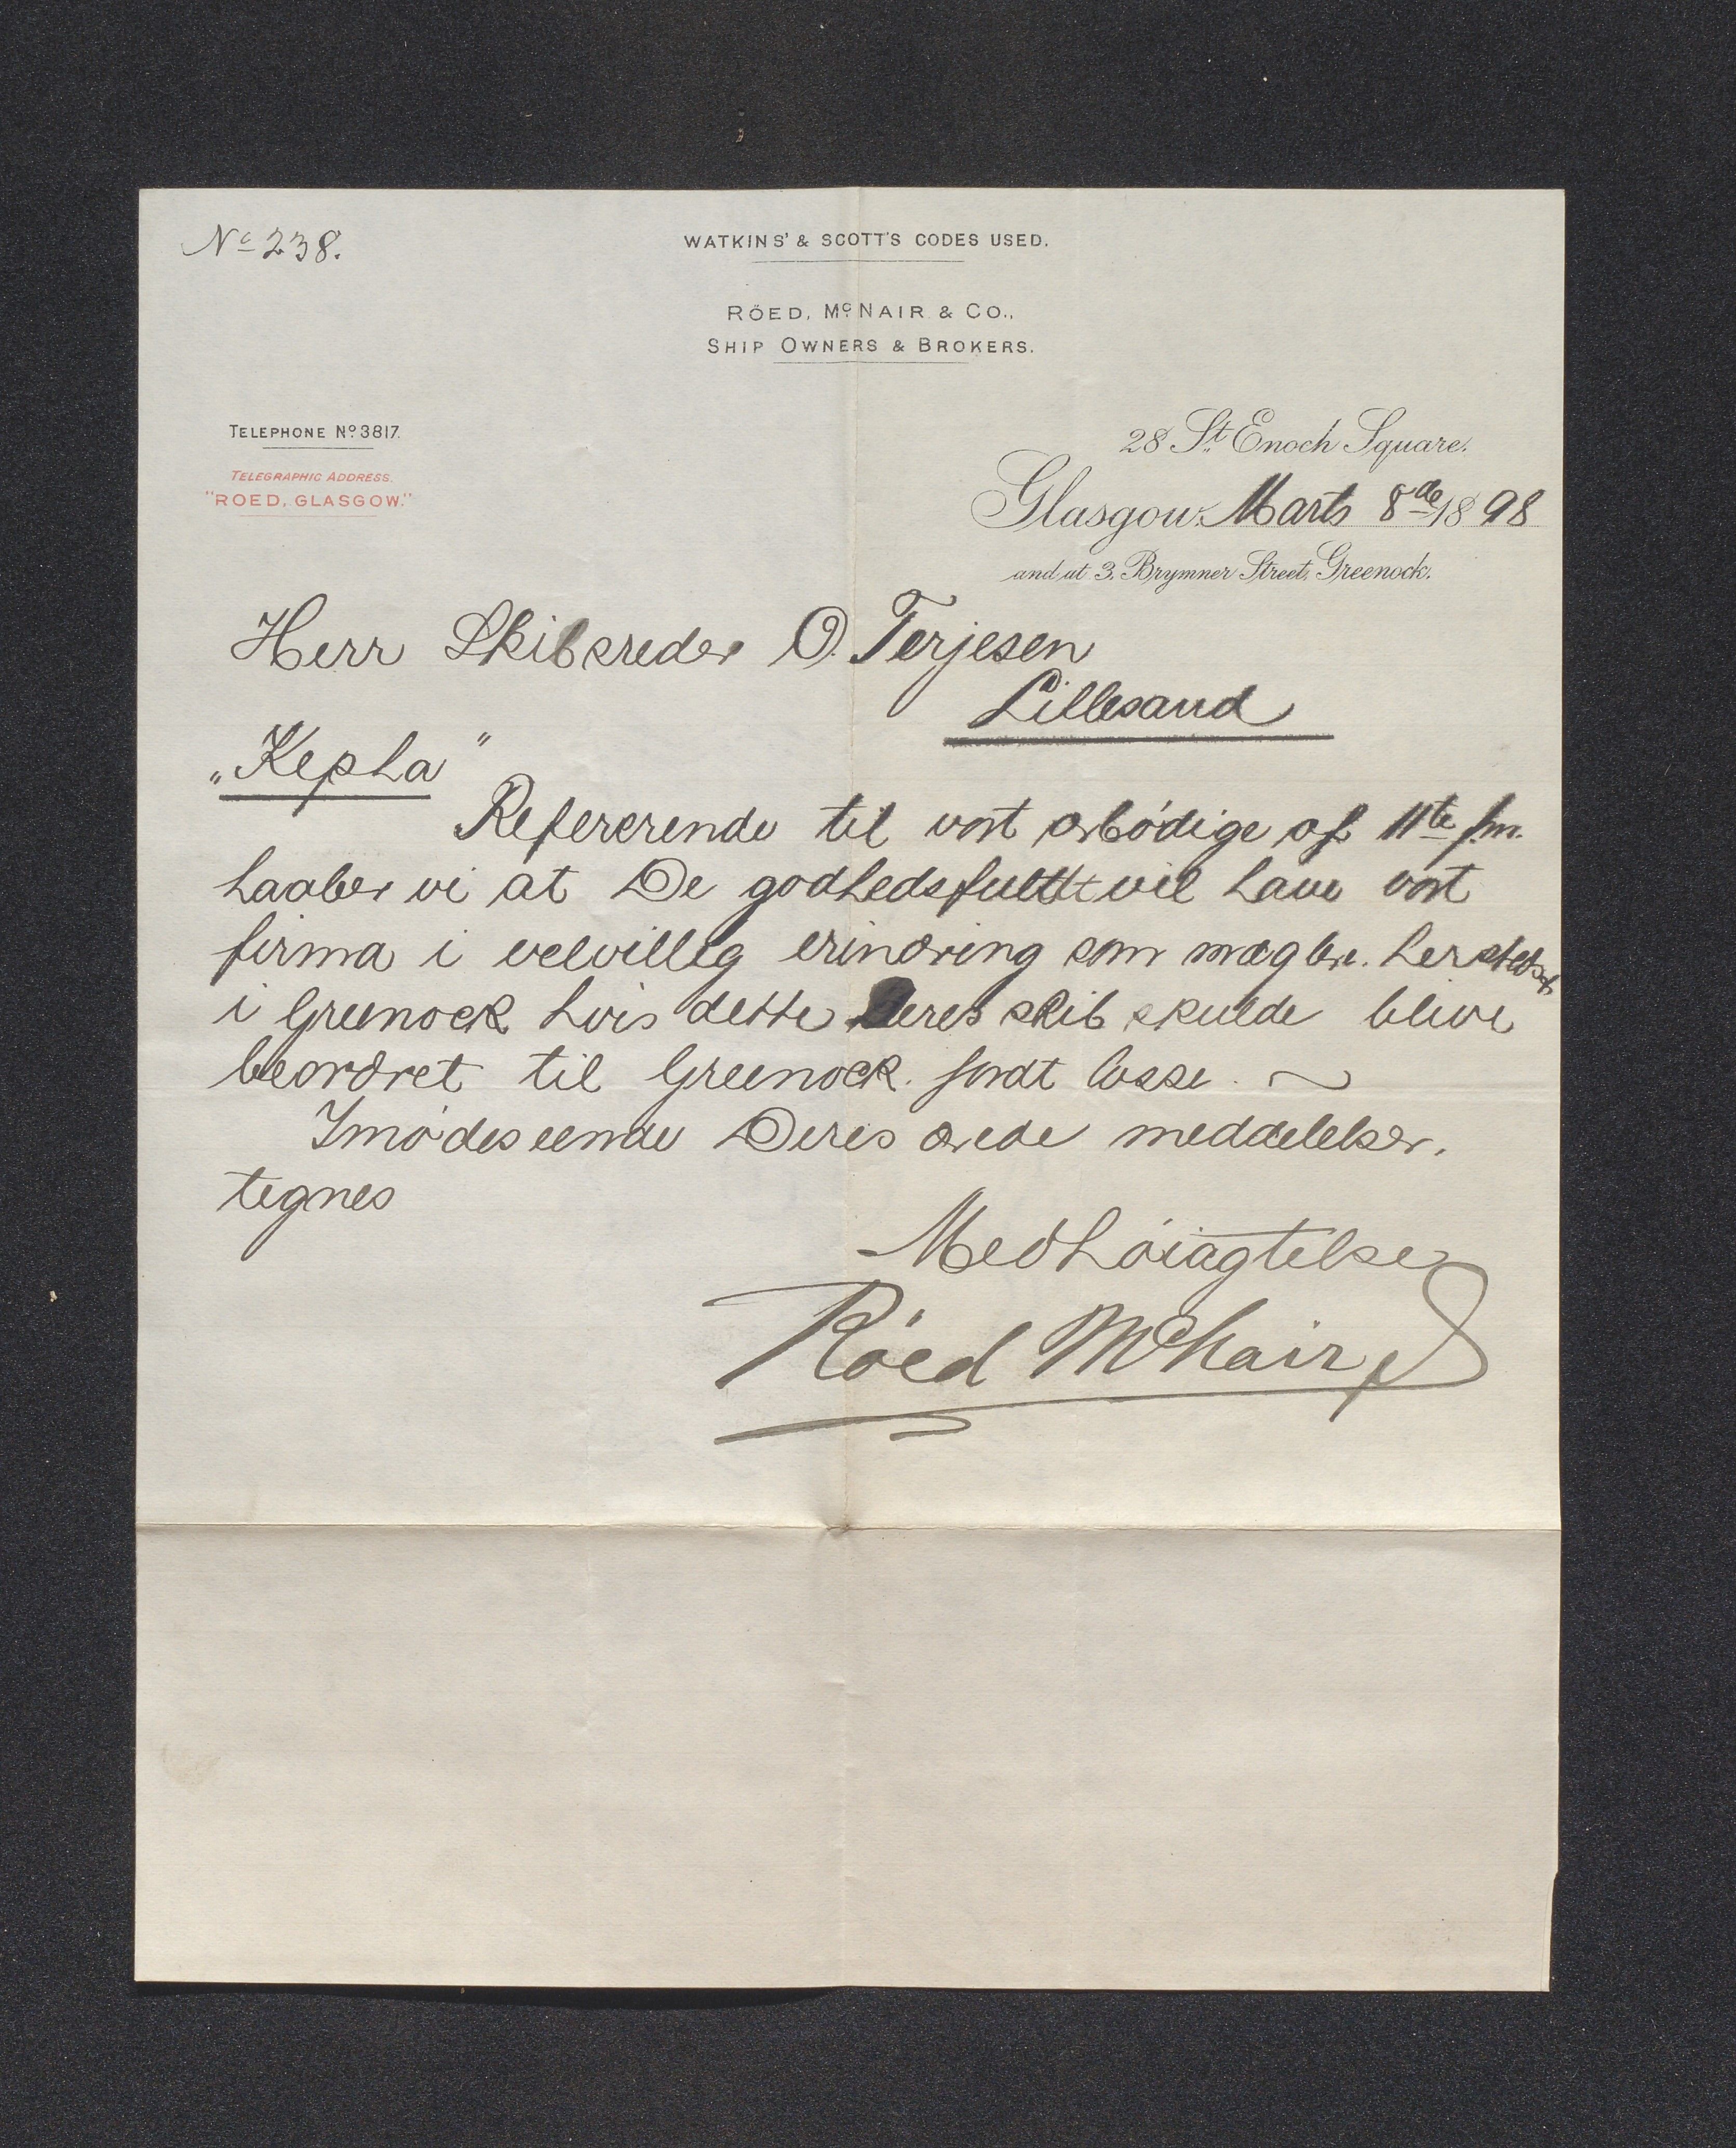 No 238.
WATKINS' & SCOTT'S CODES USED.
RÖED, McNAIR & CO.,
SHIP OWNERS & BROKERS.
TELEPHONE No 3817.
TELEGRAPHIC ADDRESS.
"ROED, GLASGOW."
28 St. Enoch Square.
Glasgow, Marts 8de 1898
and at 3, Brymner Street, Greenock.
Herr Skibsreder O. Terjesen
Lillesand
"Kepha"
Refererende til vort ærbødige af 11te f.m.
haaber vi at De godhedsfuldt vil have vort
firma i velvillig erindring som mæglere herstedst
i Greenock hvis dette Deres skib skulde blive
beordret til Greenock for at losse. ~
Imødeseende Deres ærede meddelelser,
tegnes
Med høiagtelse
Röed McNair &